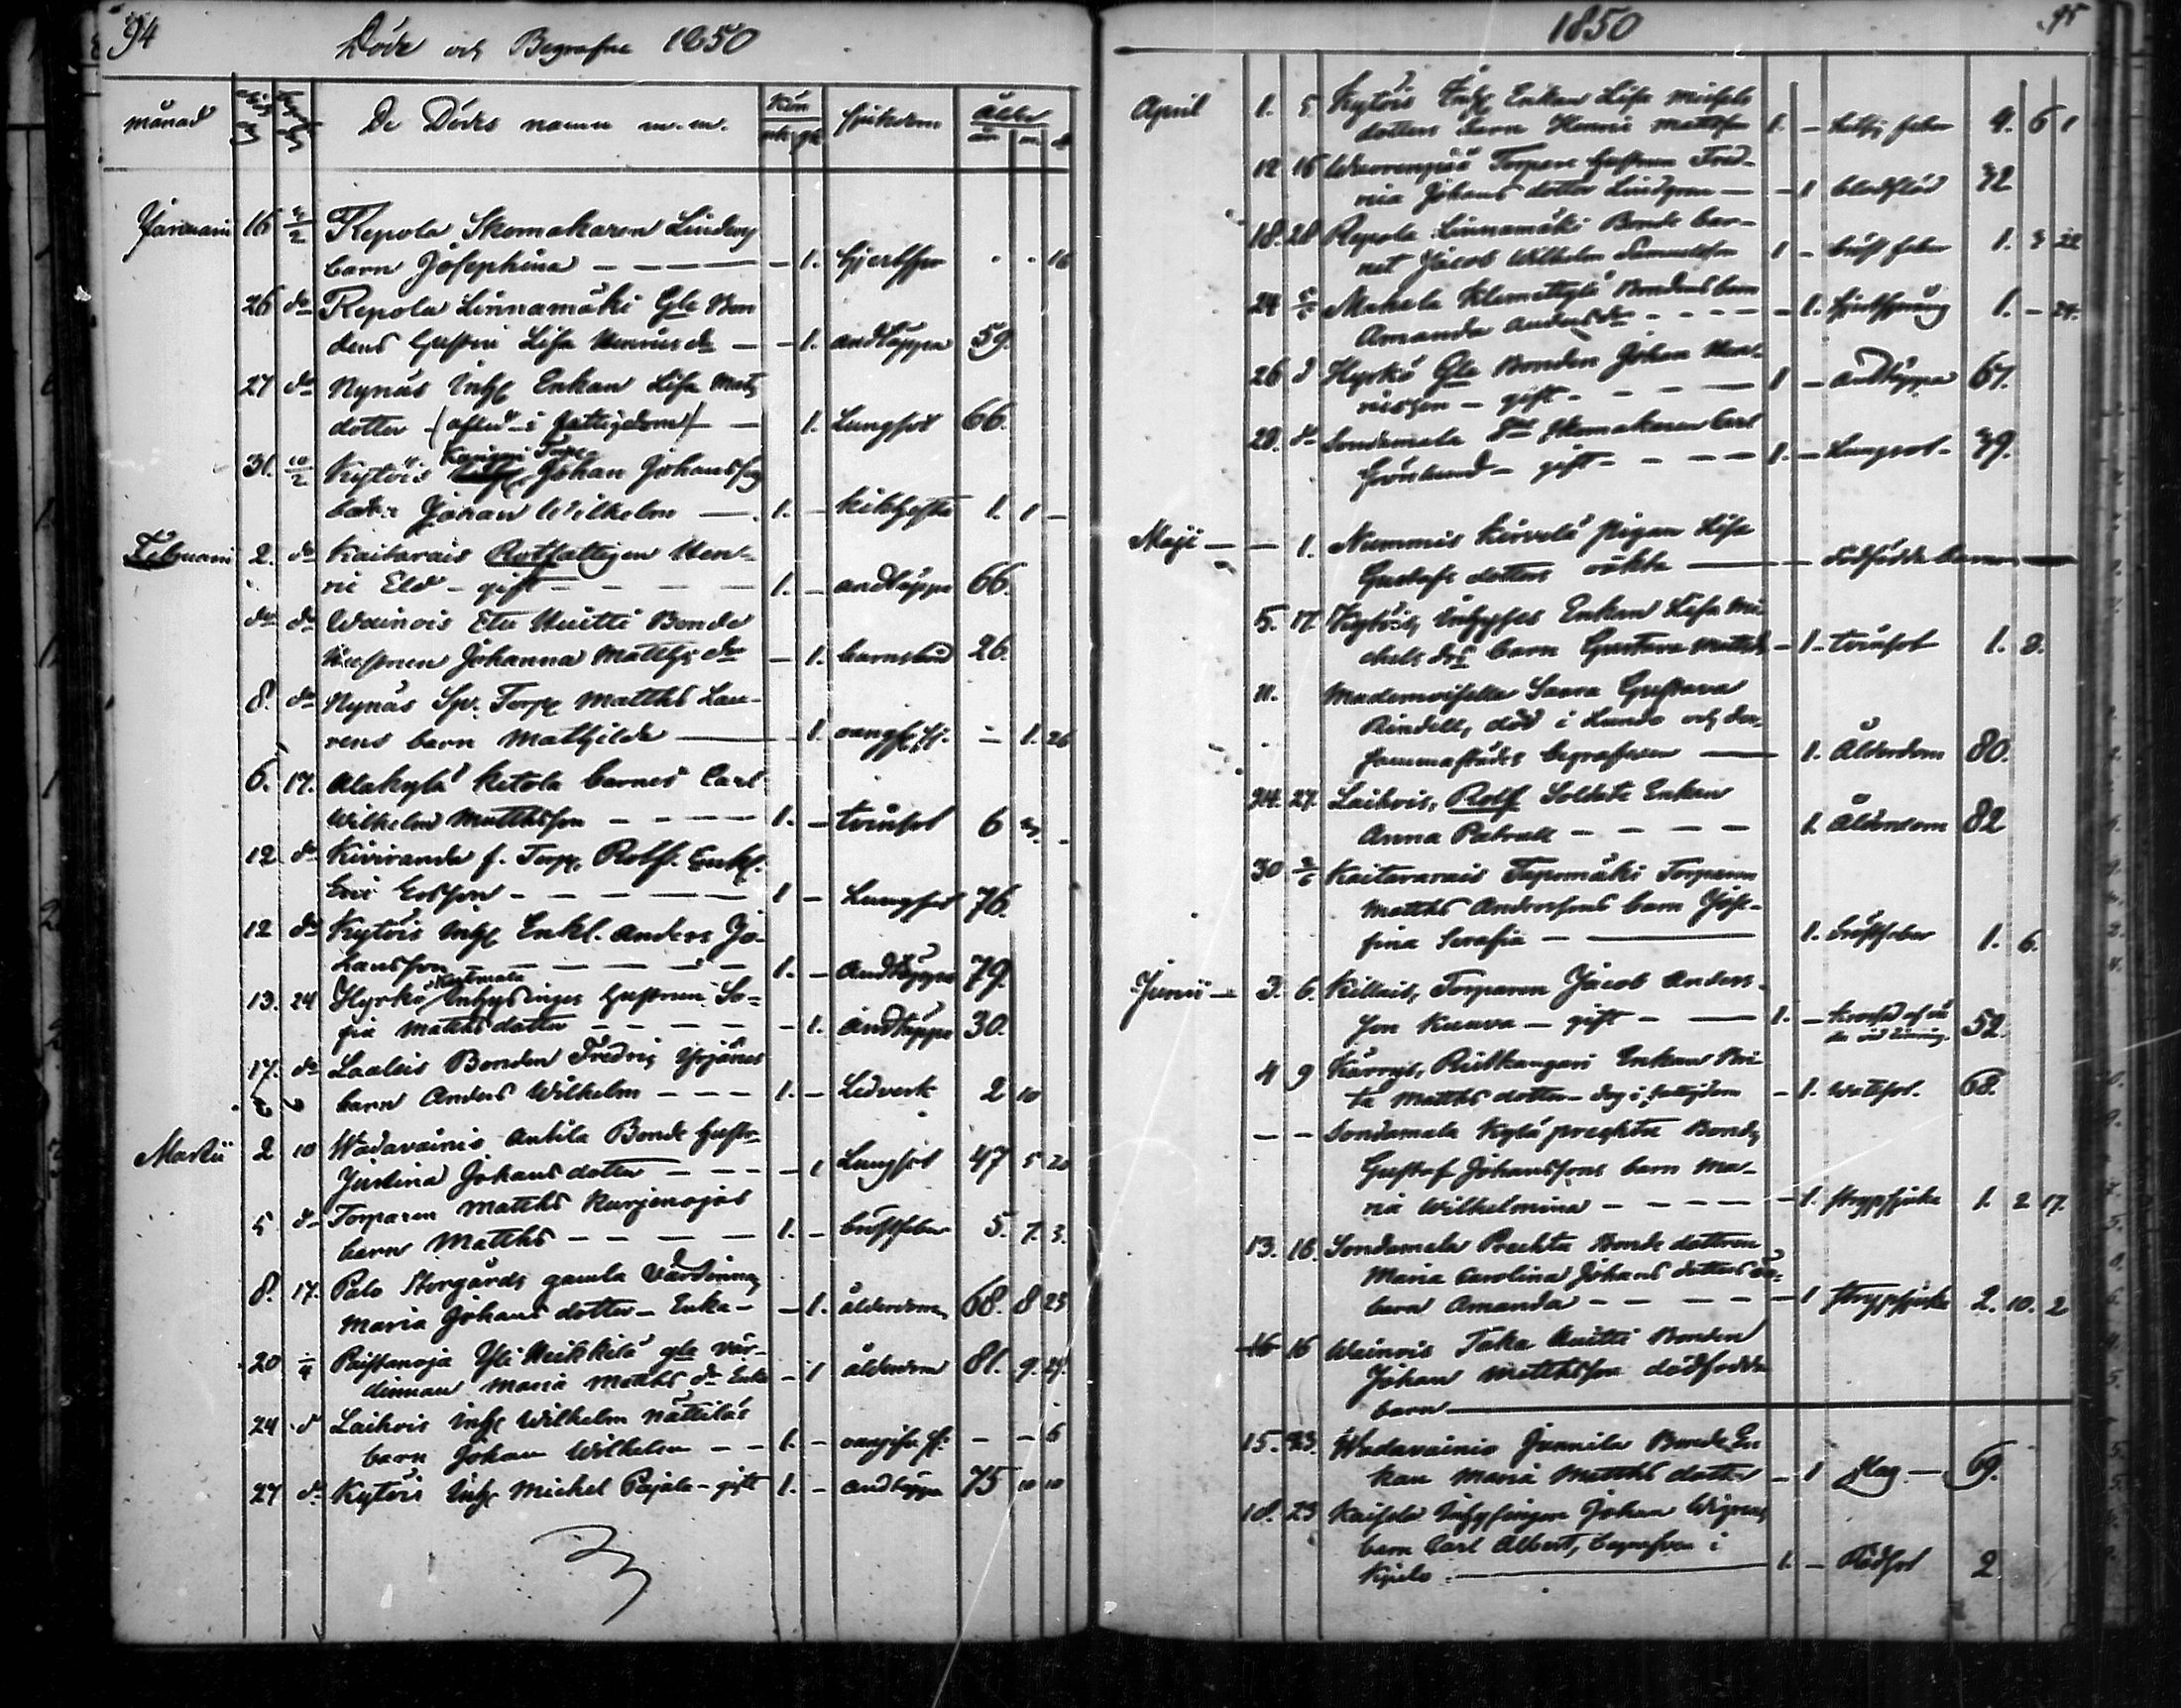 94
Döde och Begrafne 1850
månad De Dödes namn m.m. Kön sjukdom ålder
mk qk år m d
Januarii 16 3/2 Repola Skomakaren Linders
barn Josephina — — — 1. hjertspr . . 16
26 do Repola Linnamäki Gle Bon
dens Hustru Lisa Henriksdr — 1. andtäppa 59.
27 do Nynäs Inhs Enkan Lisa Mats
dotter (afled i fattigdom) — 1. Lungsot 66.
31. 10/2 Kytöis Torp. Johan Johanss
barn Johan Wilhelm — 1. — kikhosta 1. 1 —
Februarii 2. do Kaitarais Rotfattigen Hen-
ric Eld - gift — 1. — andtäppa 66.
do do Wainois Etu Huitti Bonde
Hustrun Johanna Matths dr — 1. barnsbörd 26.
8. do Nynäs Sp. Torp Matths Lau-
rens barn Mathilda — 1. — 1. 26
6. 17. Alakylä Ketola barnet Carl
Wilhelm Matthsson — 1. — tvinsot 6 3. -
12 do Kiviranda f. Torp. Rotf. Enkl.
Eric Ersson — 1 — Lungsot 76.
12 do Kytöis Inhs Enkl. Anders Jo-
hansson — 1. — Andtäppa 79.
13. 24 Hyrkö Inhysinges Hustrun So-
fia Matthsdotter — 1. andtäppa 30.
17. do Laaleis Bonden Fredric Yrjänes
barn Anders Wilhelm — 1. — Ledverk 2 10
Martii 2 10 Wadavainio Antila Bonde Hustr
Justina Johans dotter — 1 Lungsot 47 5 20
5 do Torparen Matths Kurjenojas
barn Matths — 1. — bröstfeber 5. 7. 3.
8. 17. Palo Storgårds gamla Värdinna
Maria Johans dotter - Enka - 1. ålderdom 68. 8 23
20 1/4 Raistanoja Yli Heikkilä gle vär-
dinnan Maria Matths dr Enka — 1 ålderdom 81. 9. 29.
24 d Laihois Inhs Wilhelm Nättiläs
barn Johan Wilhelm — 1. — — — 6
27 do Kytöis Inhs Michel Pajala - gift 1. — andtäppa 75 10 10
1850
95
April 1. 5 Kytöis Inhs Enkan Lisa Michels
dotters barn Henric Mattsson 1. — feber 9. 6 1
12 16 Wuorenpää Torpare Hustrun Fred-
rica Johans dotter Lindgren — 1 blodflöd 32
18. 28 Repola Linnamäki Bonde bar-
net Jacob Wilhelm Samuelsson 1 — bröst feber 1. 3 22
24 5/5 Mehela Klemettylä Bondens barn
Amanda Andersdr — 1. hjertsprång 1. — 24.
26 d Hyrkö Gle Bonden Johan Hen-
ricsson - gift — 1 — andtäppa 67.
28. do Sondamala Skomakaren Carl
Grönlund - gift — 1. — Lungsot 39.
Maji — — 1. Nummis Kirvelä pigan Lisa
Gustafs dotters oäkta — dödfödde barnen —
5. 17. Kytöis, Inhyses Enkan Lisa Mi
chels drs barn Gustava Mattsdr — 1 — tvinsot 1. 8.
11. Mademoisella Saara Gustava
Rindell, död i Lundo och der
sammastädes begrafven — 1. Ålderdom 80.
24. 27. Laihois, Rotf Soldats Enkan
Anna Patrull — 1. Ålderdom 82
30 2/6 Kaitararais Tapomäki Torparen
Matths Anderssons barn Jose-
fina Serafia — 1. bröstfeber 1. 6.
Junii — 3. 6. Killais, Torparen Jacob Anders-
son Kuuva - gift — 1. — 52.
4 9 Kärrys, Riitkangari Enkan Bri-
ta Matths dotter - dog i fattigdom — 1. Watsot. 68.
— — Sondamala Kylä prechta Bonde
Gustaf Johanssons barn Ma-
ria Wilhelmina — 1. strypsjuka 1. 2 17.
13. 16. Sondamala Prechta Bonde dottren
Maria Carolina Johans dotters oä.
barn Amanda — 1 strypsjuka 2. 10. 2
16 16 Wainois Taka Huitti Bonden
Johan Matthsson dödfödda
barn —
15. 23. Wadavainio Junnila Bonde En
kan Maria Matths dotter — 1 Slag — 69.
18. 23 Kaisela Inhysingen Johan Wigrens
barn Carl Albert, begrafven i
Kjulo — 1. — Rödsot 2